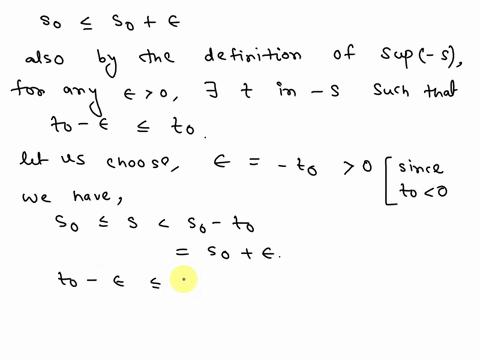 s₀ ≤ s₀ + ϵ
also by the definition of sup(-s),
for any ϵ > 0, ∃ t in -s such that
t₀ - ϵ ≤ t₀.
let us choose, ϵ = -t₀ > 0 [since
t₀ < 0
we have,
s₀ ≤ s < s₀ - t₀
= s₀ + ϵ.
t₀ - ϵ ≤